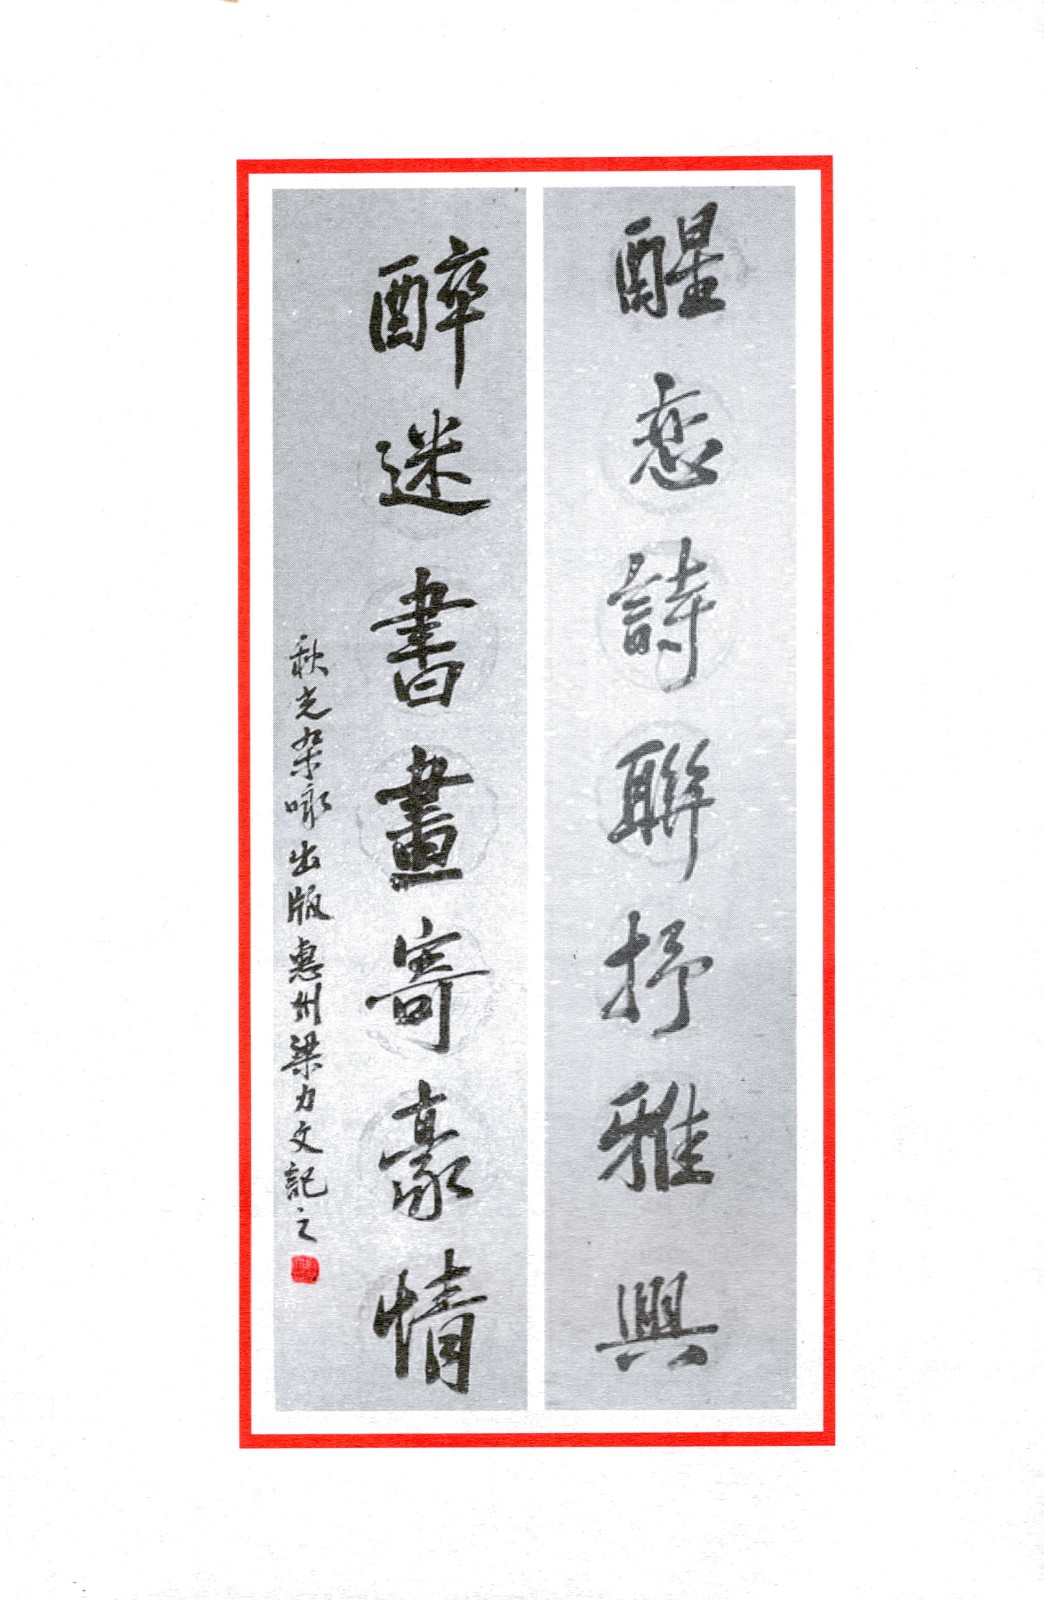 醒恋詩聯抒雅興
醉迷書畫寄豪情
秋光杂咏出版惠州梁力文記之